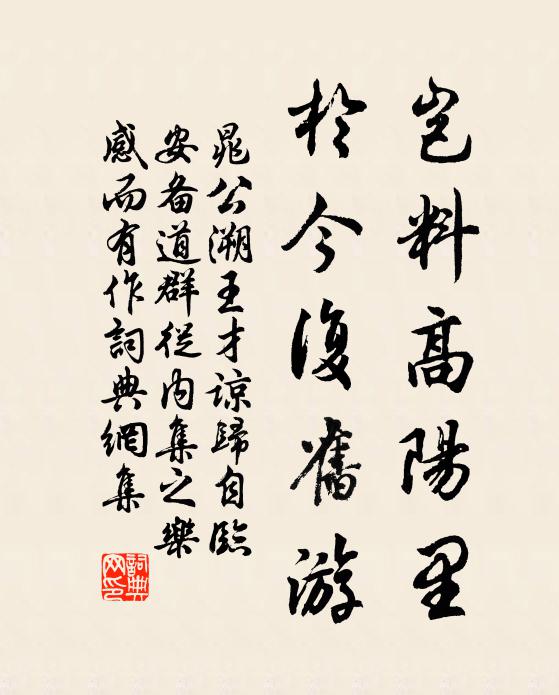 豈料高陽里
於今復舊游
晁公溯王才諒歸自臨
安备道群從内集之樂
感而有作詞典網集
詞典網印